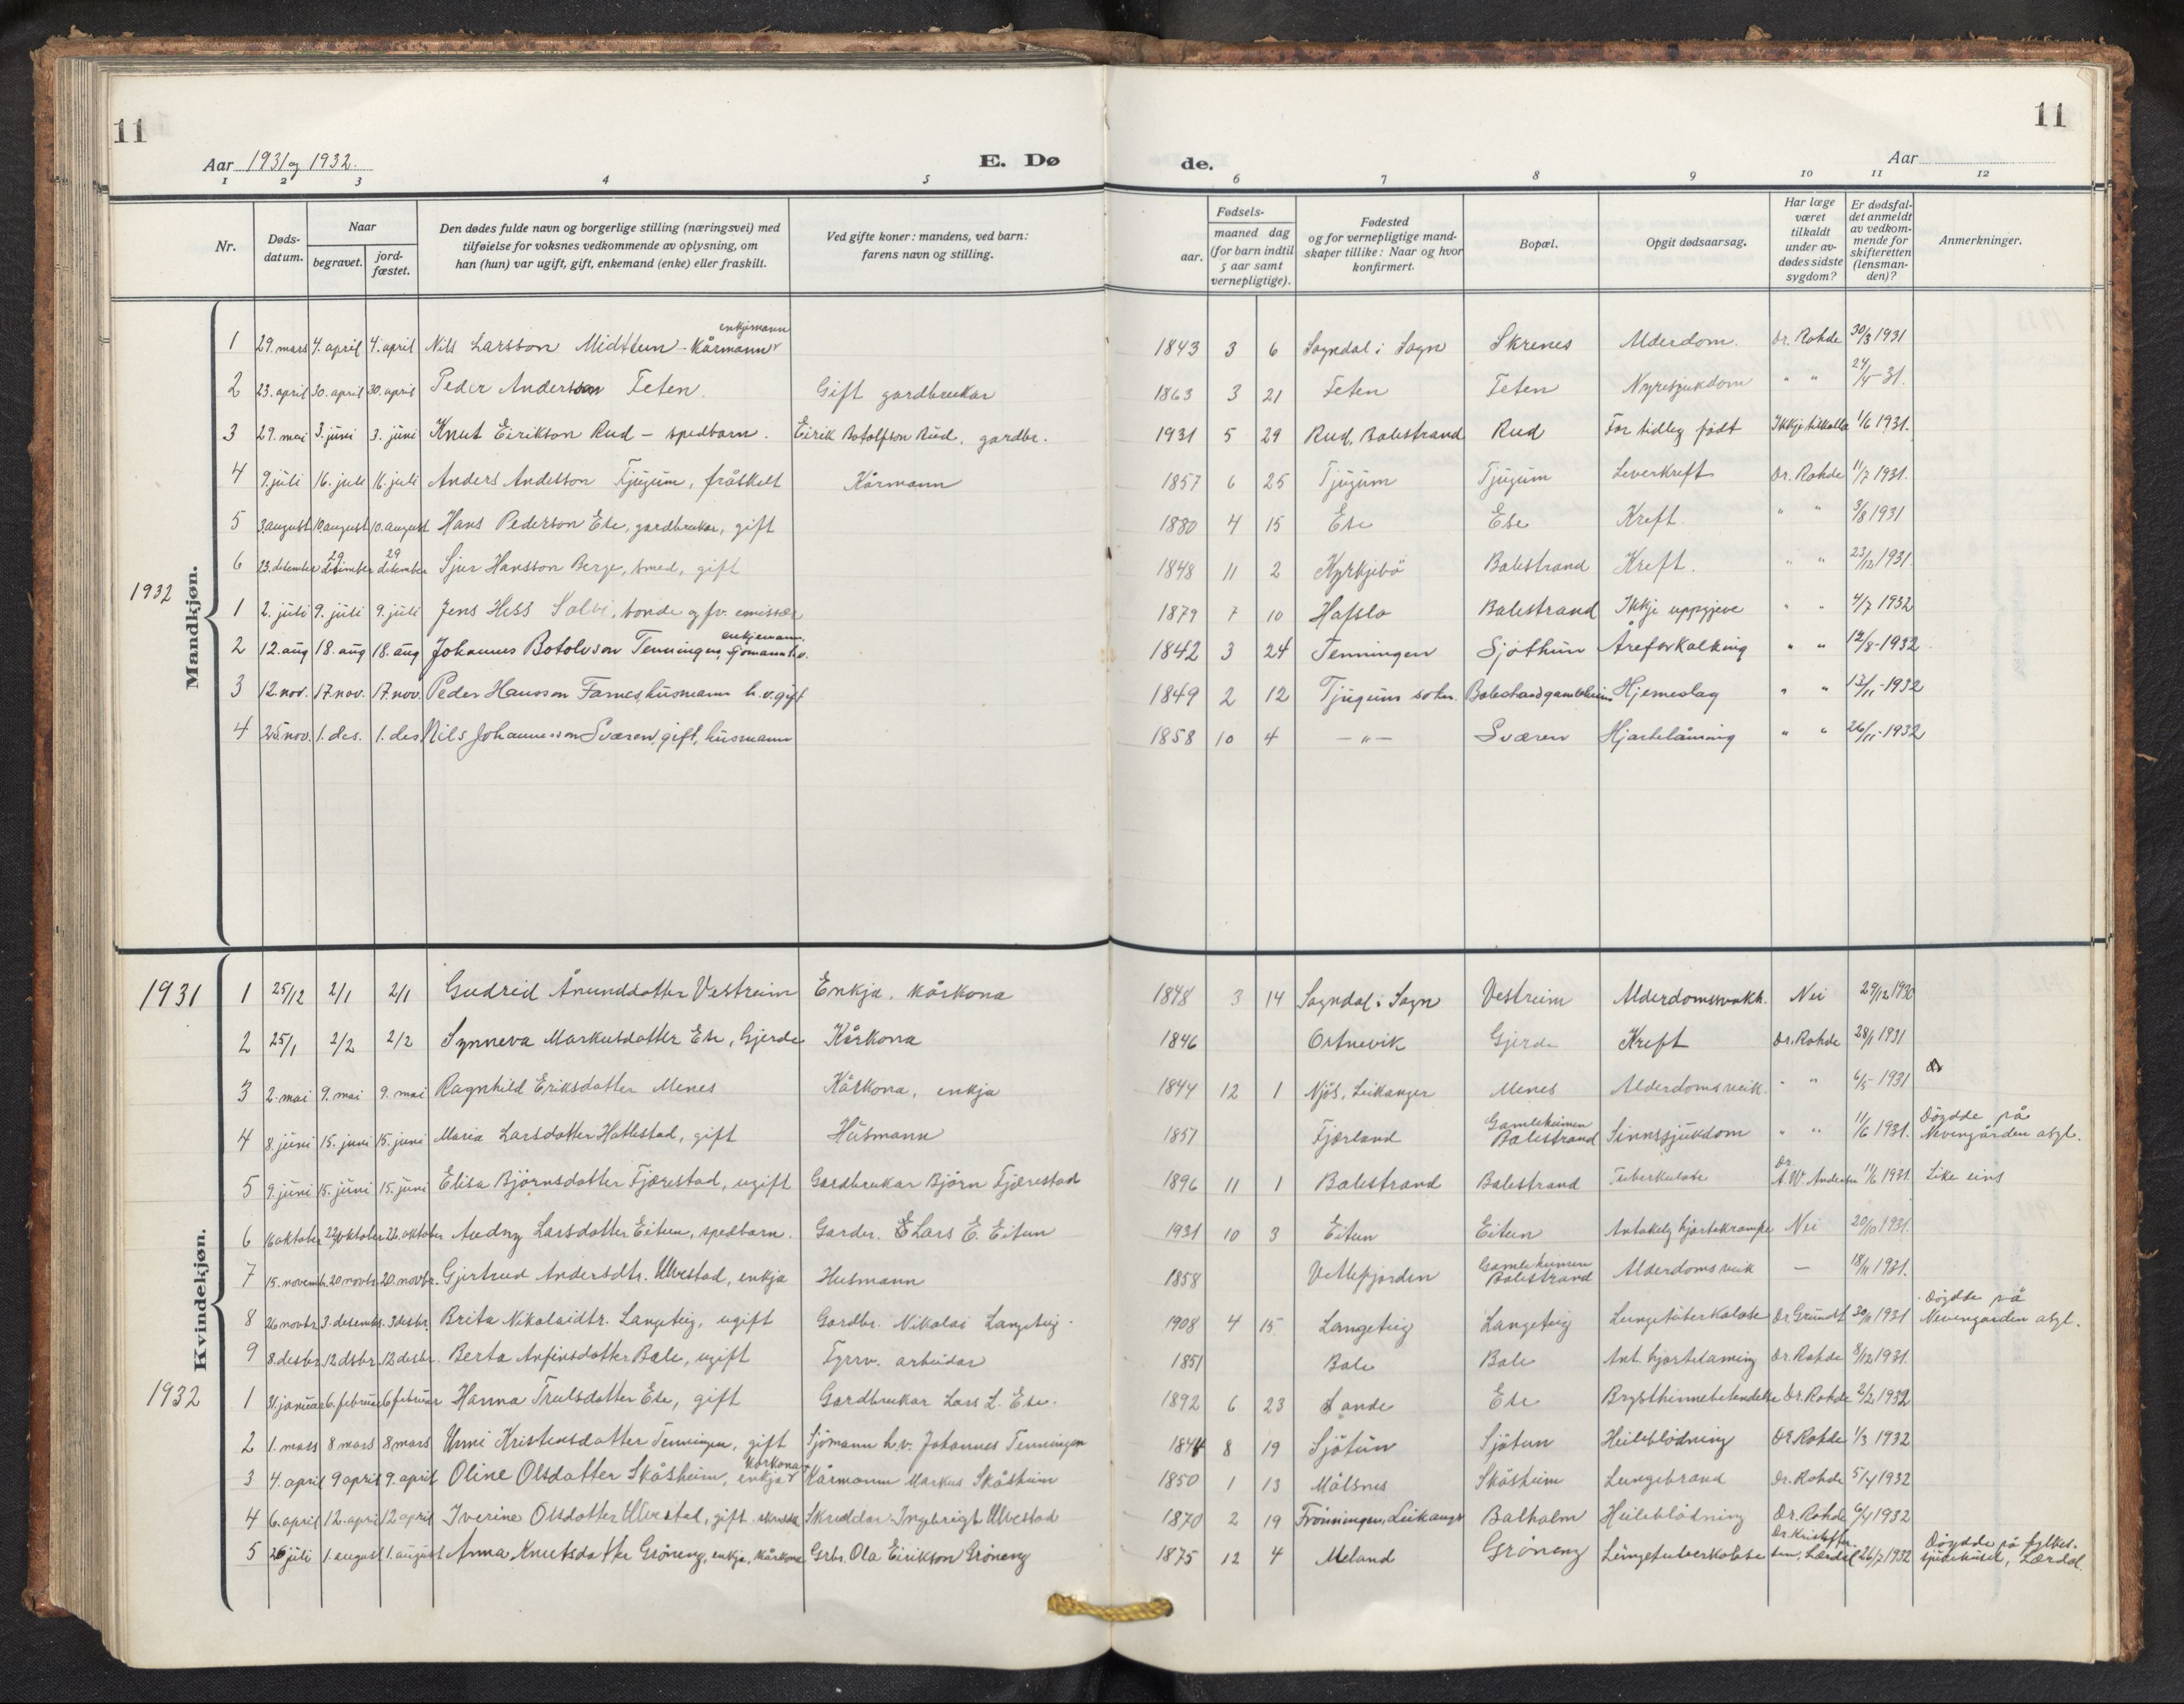 11
11
Aar 1931 og 1932.
E. Dø
de.
Aar
1 2 3 4 5 6 7 8 9 10 11 12
Nr.
Døds-
datum.
Naar
begravet.
jord-
fæstet.
Den dødes fulde navn og borgerlige stilling (næringsvei) med
tilføielse for voksnes vedkommende av oplysning, om
han (hun) var ugift, gift, enkemand (enke) eller fraskilt.
Ved gifte koner: mandens, ved barn:
farens navn og stilling.
Fødsels-
aar.
maaned dag
(for barn indtil
5 aar samt
vernepligtige).
Fødested
og for vernepligtige mand-
skaper tillike: Naar og hvor
konfirmert.
Bopæl.
Opgit dødsaarsag.
Har læge
været
tilkaldt
under av-
dødes sidste
sygdom?
Er dødsfal-
det anmeldt
av vedkom-
mende for
skifteretten
(lensman-
den)?
Anmerkninger.
Mandkjøn.
enkjemann
1 29. mars 4. april 4. april Nils Larsson Midttun - Kårmann 1843 3 6 Sogndal i Sogn Skrenes Alderdom. Dr. Rohde 30/3 1931
2 23. april 30. april 30. april Peder Anderson Feten. Gift gardbrukar 1863 3 21 Feten Feten Nyresjukdom " " 24/4 - 31.
3 29. mai 3. juni 3. juni Knut Eirikson Rud - spedbarn. Eirik Botolfson Rud, gardbr. 1931 5 29 Rud, Balestrand Rud For tidleg født Ikkje tilkalla 1/6 1931.
4 9. juli 16. juli 16. juli Anders Andesson Tjugum, fråskelt Kårmann 1857 6 25 Tjugum Tjugum Leverkreft Dr. Rohde 11/7 1931.
5 3. august 10. august 10. august Hans Pederson Ese, gardbrukar, gift 1880 4 15 Ese Ese Kreft. " " 3/8 1931
6 23. desember 29 desember 29 desember Sjur Hansson Berge, smed, gift 1848 11 2 Kyrkjebø Balestrand Kreft. " " 23/12 1931.
1932
1 2. juli 9. juli 9. juli Jens Hess Solbi, bonde og fv. emissær 1879 7 10 Hafslo Balestrand Ikkje uppgjeve " " 4/7 1932
enkjemann.
2 12. aug 18. aug 18. aug Johannes Botolvson Tenningen, sjömann h.v. 1842 3 24 Tenningen Sjøthun Åreforkalking " " 12/8 - 1932
3 12. nov. 17. nov. 17. nov. Peder Hansson Farnes, husmann h.v. gift 1849 2 12 Tjugum sokn. Balestrand gamleheim Hjerneslag " " 13/11 - 1932
4 25 nov. 1. des. 1. des Nils Johannesson Sværen, gift, husmann 1858 10 4 — " — Sværen Hjartelåming " " 26/11 - 1932
Kvindekjøn.
1931
1 25/12 2/1 2/1 Gudrid Ånunddotter Vestreim Enkja. Kårkona 1848 3 14 Sogndal i Sogn Vestreim Alderdomssvakh. Nei 29/12 1930
2 25/1 2/2 2/2 Synneva Markusdotter Ese, Gjerde Kårkona 1846 Ortnevik Gjerde Kreft Dr. Rohde 28/1 1931
3 2. mai 9. mai 9. mai Ragnhild Eriksdotter Menes Kårkona, enkja 1844 12 1 Njøs, Leikanger Menes Alderdomsveik. " " 6/5 - 1931
4 8. juni 15. juni 15. juni Maria Larsdotter Hatlestad, gift Husmann 1857 Fjærland Gamleheimen Balestrand Sinnssjukdom " " 11/6 1931. Döydde på Nevengården asyl.
5 9. juni 15. juni 15. juni Elisa Bjørnsdotter Fjærestad, ugift Gardbrukar Bjørn Fjærestad 1896 11 1 Balestrand Balestrand Tuberkulose Dr. A.W. Andersen 11/6 1931. Like eins
6 16 oktober 22 oktober 22. oktober Audny Larsdotter Eitun, spedbarn. Gardbr. Lars E. Eitun 1931 10 3 Eitun Eitun Antakeleg hjartekrampe Nei 20/10 1931.
7 15. novembr. 20 novbr. 20. novbr. Gjertrud Andersdtr. Ulvestad, enkja Husmann 1858 Vetlefjorden Gamleheimen Balestrand Alderdomsveik — 18/11 1931.
8 26 novbr. 3. desembr. 3 desbr. Brita Nikolaidtr. Langeteig, ugift Gardbr. Nikolai Langeteig. 1908 4 15 Langeteig Langeteig Lungetuberkulose Dr Grundt 30/11 1931 Döydde på Nevengården asyl.
9 8. desbr. 12 dsbr. 12 desbr. Berta Anfinsdotter Bale, ugift Fyrrv. arbeidar 1851 Bale Bale Ant. hjartelaming Dr. Rohde 8/12 1931.
1932
1 31. januar 6. februar 6 februar Hanna Trulsdotter Ese, gift Gardbrukar Lars L. Ese. 1892 6 23 Sande Ese Brysthinnebetendelse Dr. Rohde 2/2 1932
2 1. mars 8 mars 8 mars Unni Kristensdotter Tenningen, gift Sjömann h.v. Johannes Tenningen 1844 8 19 Sjötun Sjötun Heileblödning Dr Rohde 1/3 1932
kårkona
3 4. april 9 april 9. april Oline Olsdotter Skåsheim, enkja Kårmann Markus Skåsheim 1850 1 13 Målsnes Skåsheim Lungebrand Dr. Rohde 5/4 1932
4 6. april 12. april 12 april Iverine Olsdotter Ulvestad, gift Skreddar Ingebrigt Ulvestad 1870 2 19 Frönningen, Leikanger Balholm Heileblödning Dr. Rohde 6/4 1932
5 26 juli 1. august 1. august Anna Knutsdotter Gröneng, enkja, kårkona Grbr. Ola Eirikson Gröneng 1875 12 4 Meland Gröneng Lungetuberkulose Dr. Kristoffersen, Lærdal 26/7 1932 Döydde på fylkessjukehuset, Lærdal.